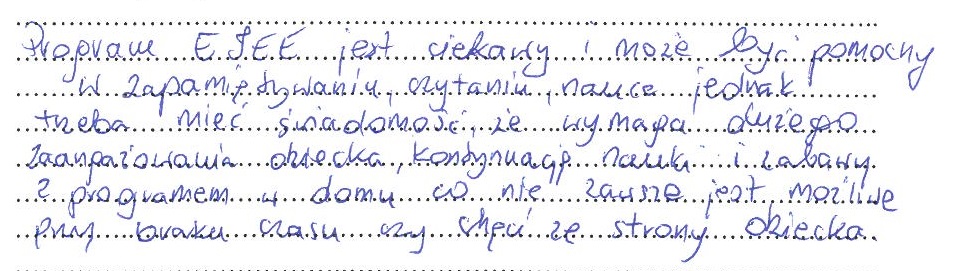 Program EJEE jest ciekawy i może być pomocny
w zapamiętywaniu, czytaniu, nauce jednak
trzeba mieć świadomość, że wymaga dużego
zaangażowania dziecka, kontynuacji nauki i zabawy
z programem w domu co nie zawsze jest możliwe
przy braku czasu czy chęci ze strony dziecka.